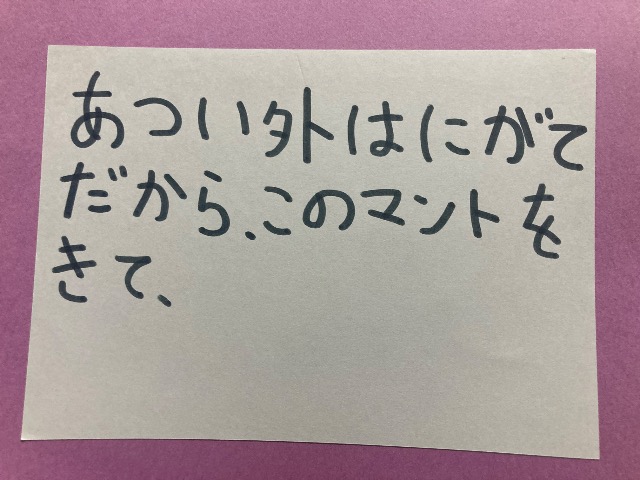 あつい外はにがて
だから、このマントを
きて、